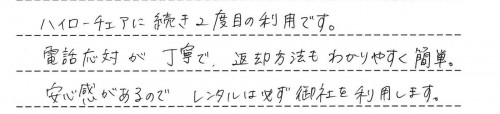 ハイローチェアに続き2度目の利用です。
電話応対が丁寧で、返却方法もわかりやすく簡単。
安心感があるのでレンタルは必ず御社を利用します。